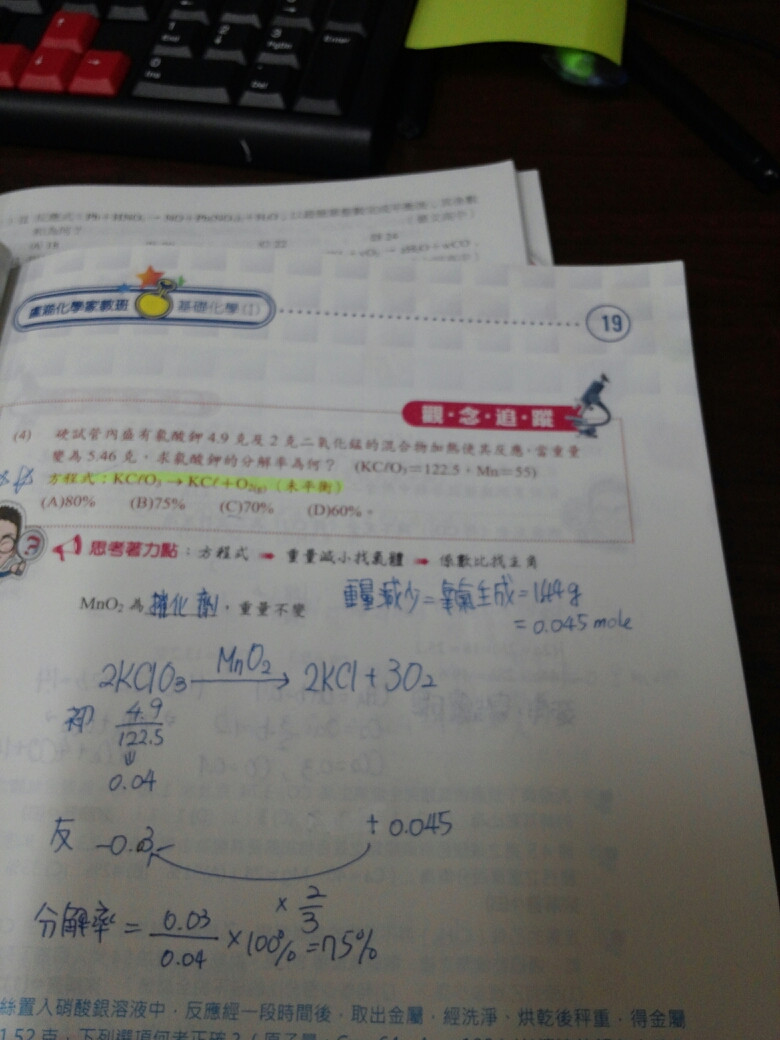 反應式：Pb+HNO₃→NO+Pb(NO₃)₂+H₂O
和為何？
盧鎧化學家教班 基礎化學(I)
19
觀·念·追·蹤
(4) 硬試管內盛有氯酸鉀4.9克及2克二氧化錳的混合物加熱使其反應，當重量
變為5.46克，求氯酸鉀的分解率為何？ (KCℓO₃=122.5，Mn=55)
方程式：KCℓO₃→KCℓ+O₂(g)（未平衡）
(A)80% (B)75% (C)70% (D)60%。
思考著力點：方程式 ➡ 重量減小找氣體 ➡ 係數比找主角
MnO₂為催化劑，重量不變
重量減少=氧氣生成=1.44g
=0.045 mole
2KClO₃ MnO₂→ 2KCl+3O₂
初 4.9/122.5
⇓
0.04
反 -0.03 +0.045
×2/3
分解率=0.03/0.04×100%=75%
絲置入硝酸銀溶液中，反應經一段時間後，取出金屬，經洗淨、烘乾後秤重，得金屬
1.52克，下列選項何者正確？